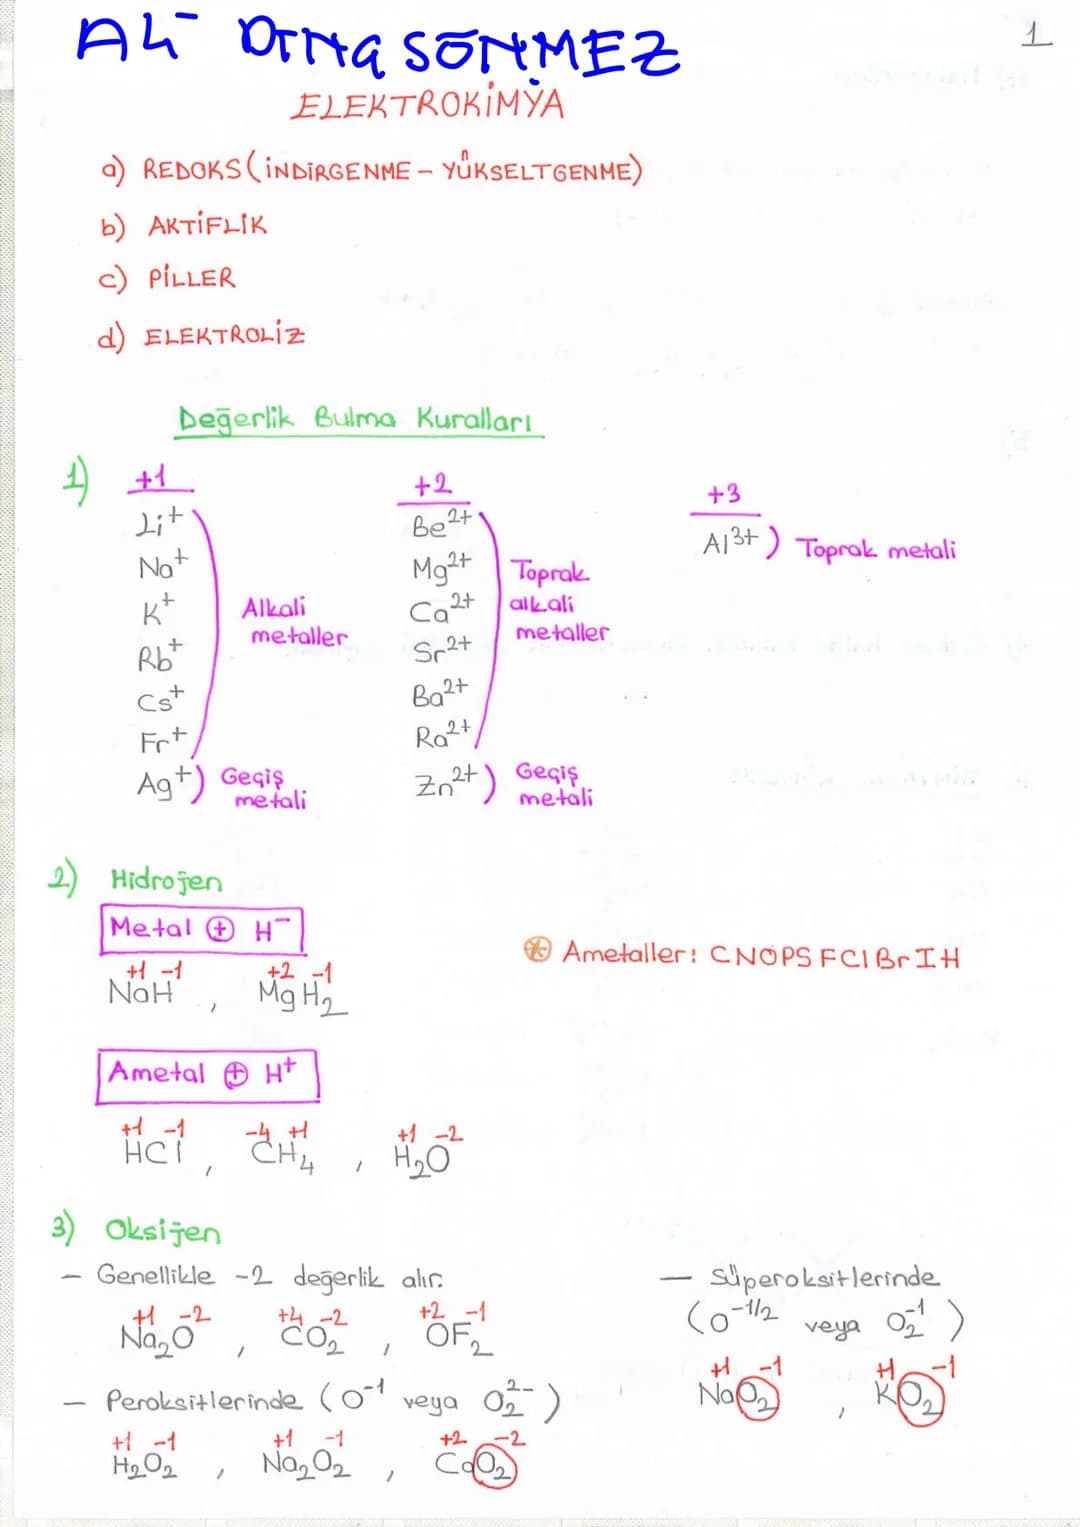 1
ELEKTROKİMYA
a) REDOKS (İNDİRGENME - YÜKSELTGENME)
b) AKTİFLİK
c) PİLLER
d) ELEKTROLİZ
Değerlik Bulma Kuralları
1) +1
Li⁺
Na⁺
K⁺
Rb⁺
Cs⁺
Fr⁺
Alkali
metaller
Ag⁺) Geçiş
metali
+2
Be²⁺
Mg²⁺
Ca²⁺
Sr²⁺
Ba²⁺
Ra²⁺
Toprak
alkali
metaller
Zn²⁺) Geçiş
metali
+3
Al³⁺) Toprak metali
2) Hidrojen
Metal ⊕ H⁻
+1 -1 +2 -1
NaH , MgH₂
⊛ Ametaller: CNOPSFClBrIH
Ametal ⊕ H⁺
+1 -1 -4 +1 +1 -2
HCl , CH₄ , H₂O
3) Oksijen
- Genellikle -2 değerlik alır.
+1 -2 +4 -2 +2 -1
Na₂O , CO₂ , OF₂
- Peroksitlerinde (O⁻¹ veya O₂²⁻)
+1 -1 +1 -1 +2 -2
H₂O₂ , Na₂O₂ , CaO₂
- Süperoksitlerinde
(O⁻¹/² veya O₂⁻¹)
+1 -1 +1 -1
NaO₂ , KO₂